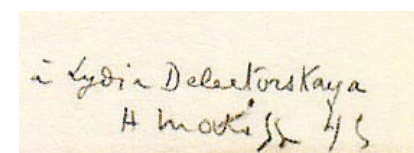 à Lydia Delectorskaya
H Matisse 45